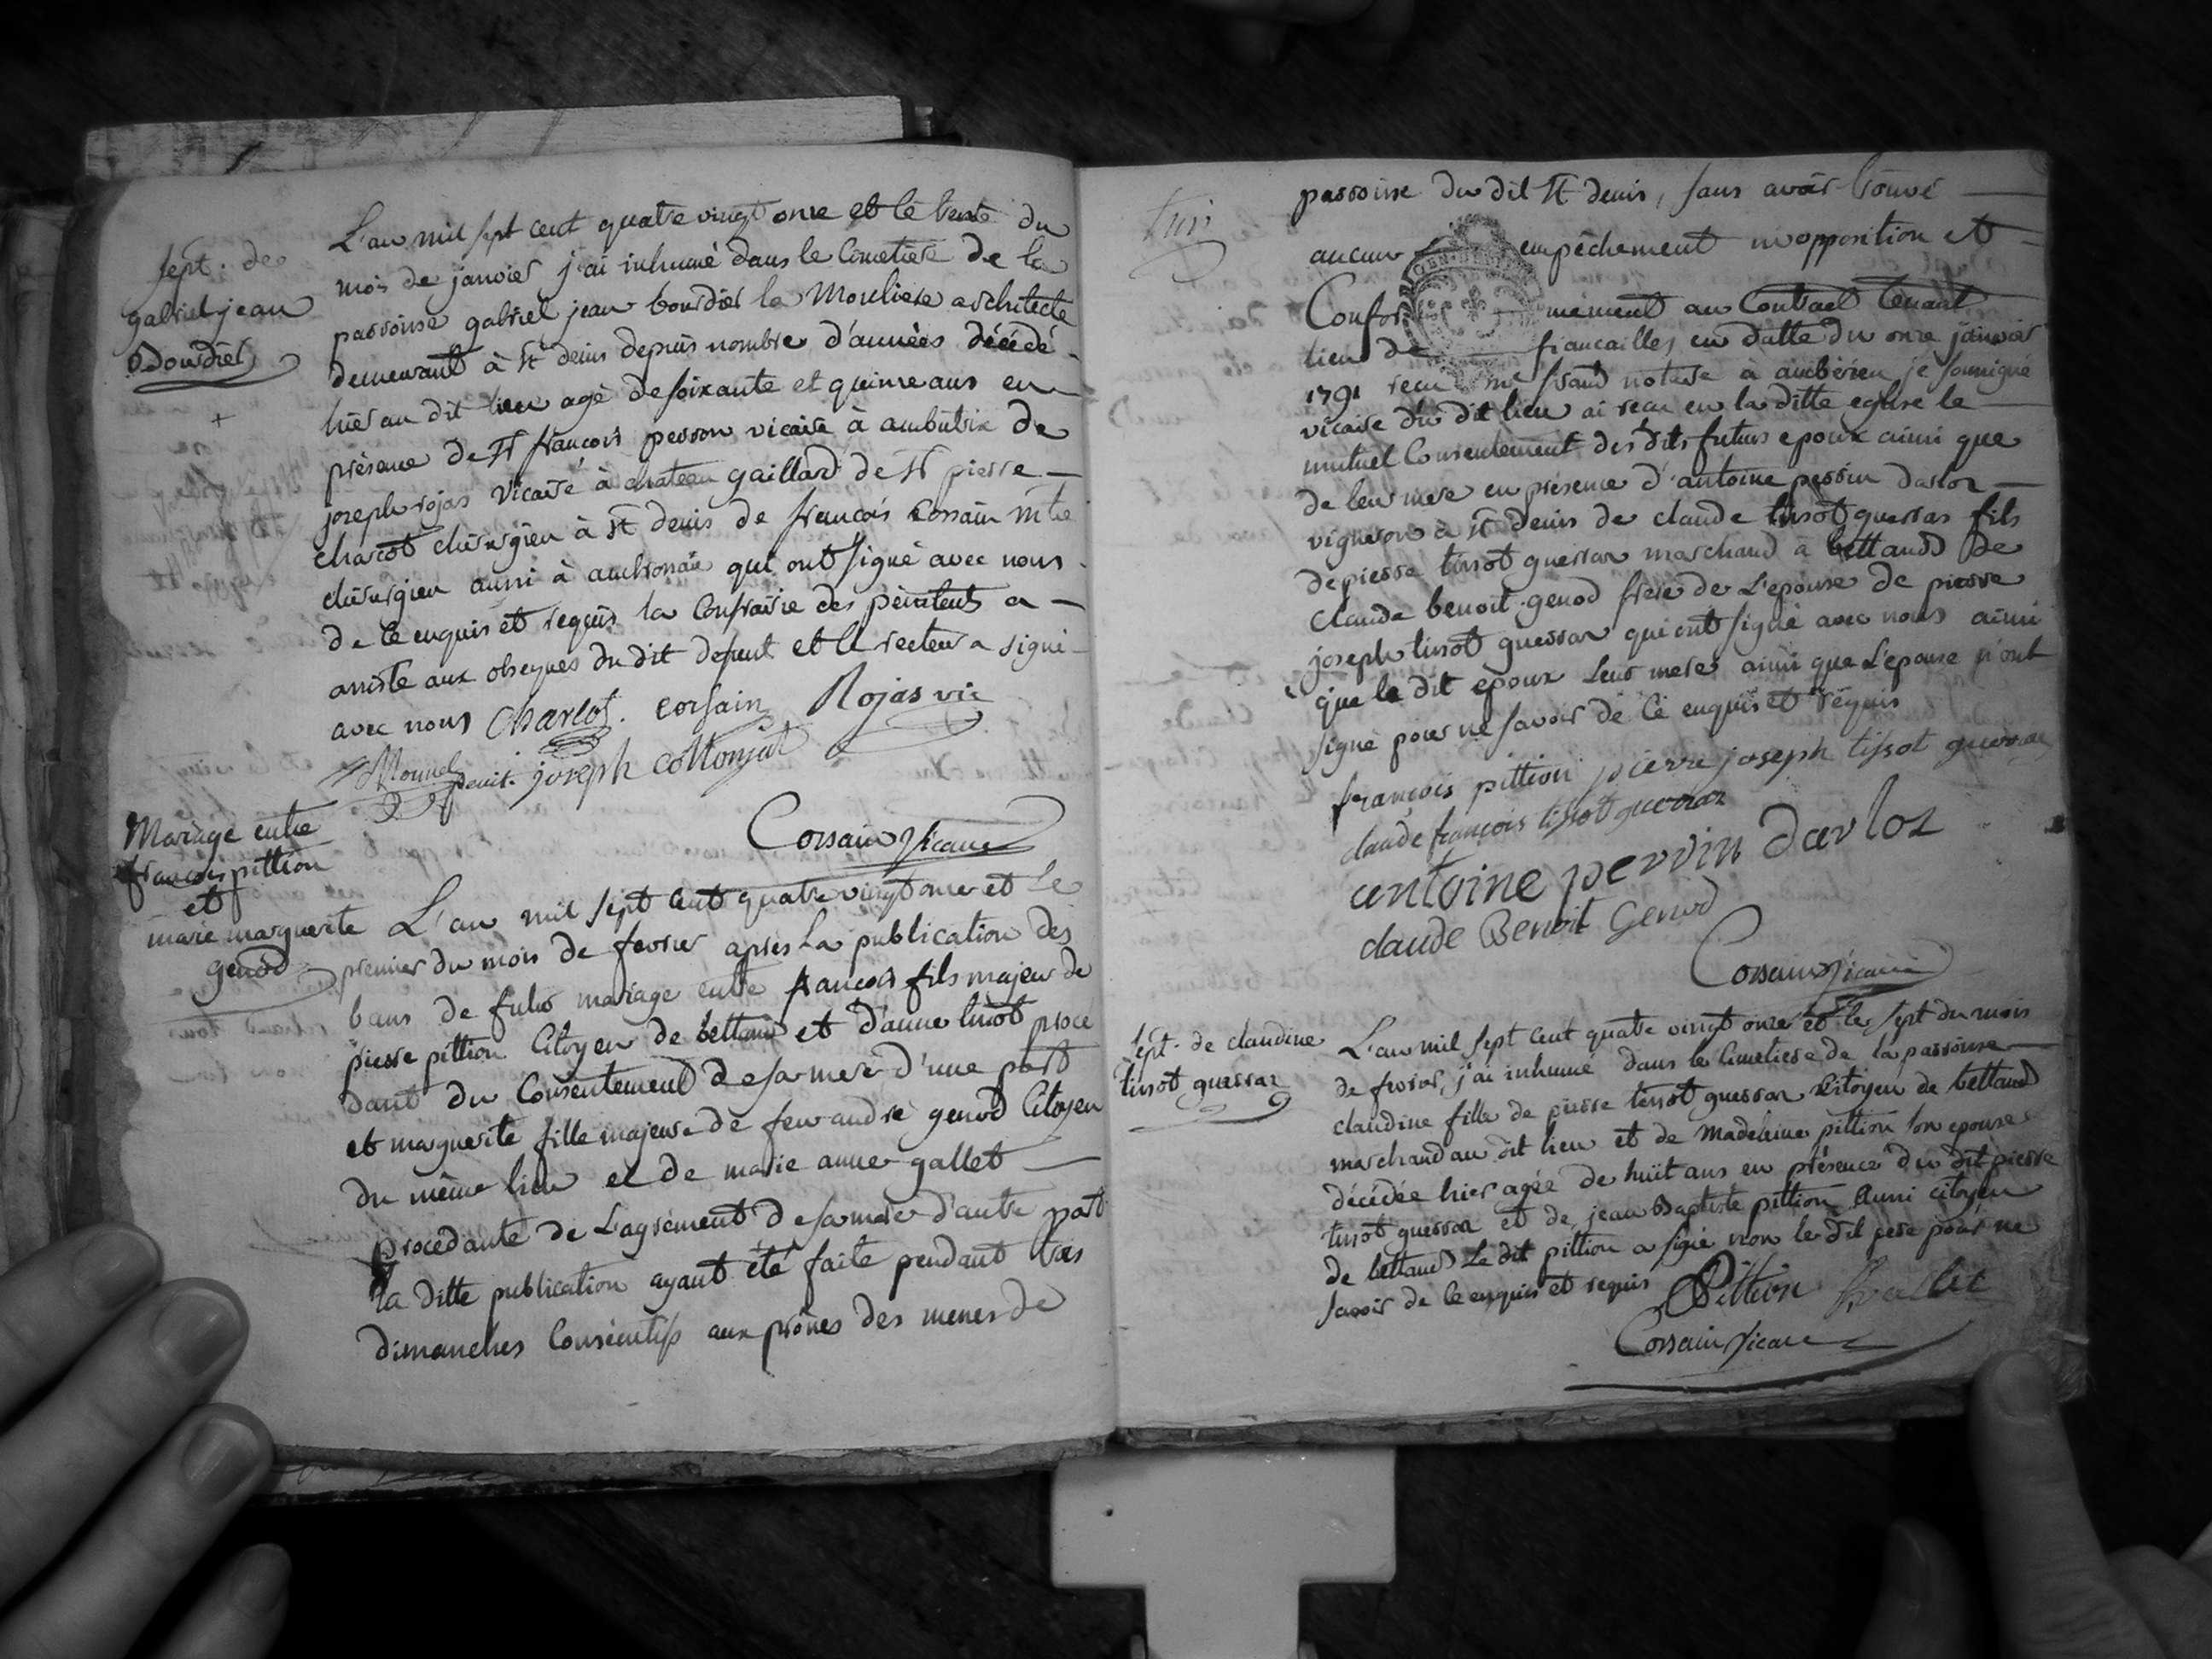 sept. de
gabriel jean
bourdier
L'an mil sept cent quatre vingt onze et le trente du
mois de janvier j'ai inhumé dans le cimetiere de la
parroisse gabriel jean bourdier la Mouliere architecte
demeurant à St denis depuis nombre d'années décédé
hier au dit lieu agé de soixante et quinze ans en
présence de Sr françois perron vicaire à ambutrix de
joseph rojas vicaire à chateau gaillard de Sr pierre
charcot chirurgien à St denis de françois Corsain mtre
chirurgien aussi à ambronai qui ont signé avec nous
de ce enquis et requis la Confrairie des pénitents a
assisté aux obseques du dit defunt et le recteur a signé
avec nous Charcot. corsain Rojas vic
Monnel penit. joseph cottonjat
Corsain Vicaire
Mariage entre
françois pittion
et
marie marguerite
genod
L'an mil sept cent quatre vingt onze et le
premier du mois de fevrier apres la publication des
bans de futur mariage entre françois fils majeur de
pierre pittion Citoyen de bettand et d'anne tissot procé
dant du Consentement de sa mere d'une part
et marguerite fille majeure de feu andré genod Citoyen
du même lieu et de marie anne gallet
procedante de L'agrément de sa mere d'autre part
la ditte publication ayant été faite pendant trois
dimanches Consécutifs aux prônes des messes de
parroisse du dit St denis, sans avoir trouvé
aucun empêchement ni opposition et
Confor mément au Contract tenant
lieu de fiancailles en datte du onze janvier
1791 recu me notaire à ambérieu je soussigné
vicaire du dit lieu ai recu en la ditte eglise le
mutuel Consentement des dits futurs epoux ainsi que
de leur mere en présence d'antoine perrin darloz
vigneron à St denis de claude tissot guerraz fils
de pierre tissot guerraz marchand à bettand de
Claude benoit genod frere de L'epouse de pierre
joseph tissot guerraz qui ont signé avec nous ainsi
que le dit epoux leur meres ainsi que L'epouse n'ont
signé pour ne savoir de ce enquis et requis
françois pittion pierre joseph tissot guerraz
claude françois tissot guerraz
antoine pervin darloz
claude Benoit Genod
Corsain Vicaire
sept. de claudine
tissot guerraz
L'an mil sept cent quatre vingt onze et le sept du mois
de fevrier j'ai inhumé dans le cimetiere de la parroisse
claudine fille de pierre tissot guerraz Citoyen de bettand
marchand au dit lieu et de Madelaine pittion son epouse
décédée hier agée de huit ans en présence du dit pierre
tissot guerraz et de jean Baptiste pittion aussi citoyen
de bettand le dit pittion a signé non le dit pere pour ne
savoir de ce enquis et requis Pittion
Corsain Vicaire